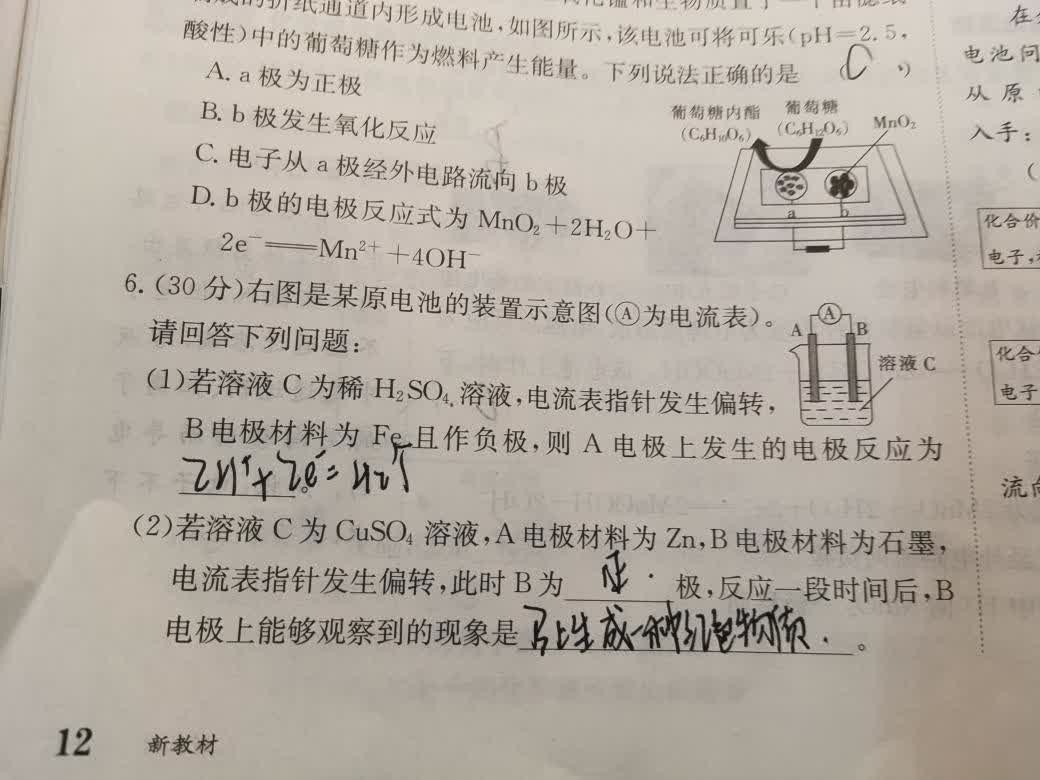 的折纸通道内形成电池,如图所示,该电池可将可乐(pH=2.5,
酸性)中的葡萄糖作为燃料产生能量。下列说法正确的是
A. a 极为正极
B. b 极发生氧化反应
C. 电子从 a 极经外电路流向 b 极
D. b 极的电极反应式为 MnO₂+2H₂O+
2e⁻══Mn²⁺+4OH⁻
葡萄糖内酯
(C₆H₁₀O₆)
葡萄糖
(C₆H₁₂O₆)
MnO₂
a
b
6. (30 分)右图是某原电池的装置示意图(Ⓐ为电流表)。
请回答下列问题:
A
Ⓐ
B
溶液 C
(1)若溶液 C 为稀 H₂SO₄ 溶液,电流表指针发生偏转,
B 电极材料为 Fe 且作负极,则 A 电极上发生的电极反应为
2H⁺+2e⁻=H₂↑
。
(2)若溶液 C 为 CuSO₄ 溶液,A 电极材料为 Zn,B 电极材料为石墨,
电流表指针发生偏转,此时 B 为 正 极,反应一段时间后,B
电极上能够观察到的现象是 B上生成一种红色物质 。
12 新教材
电池问
从 原
入手:
化合价
电子,
化合
电子
流向